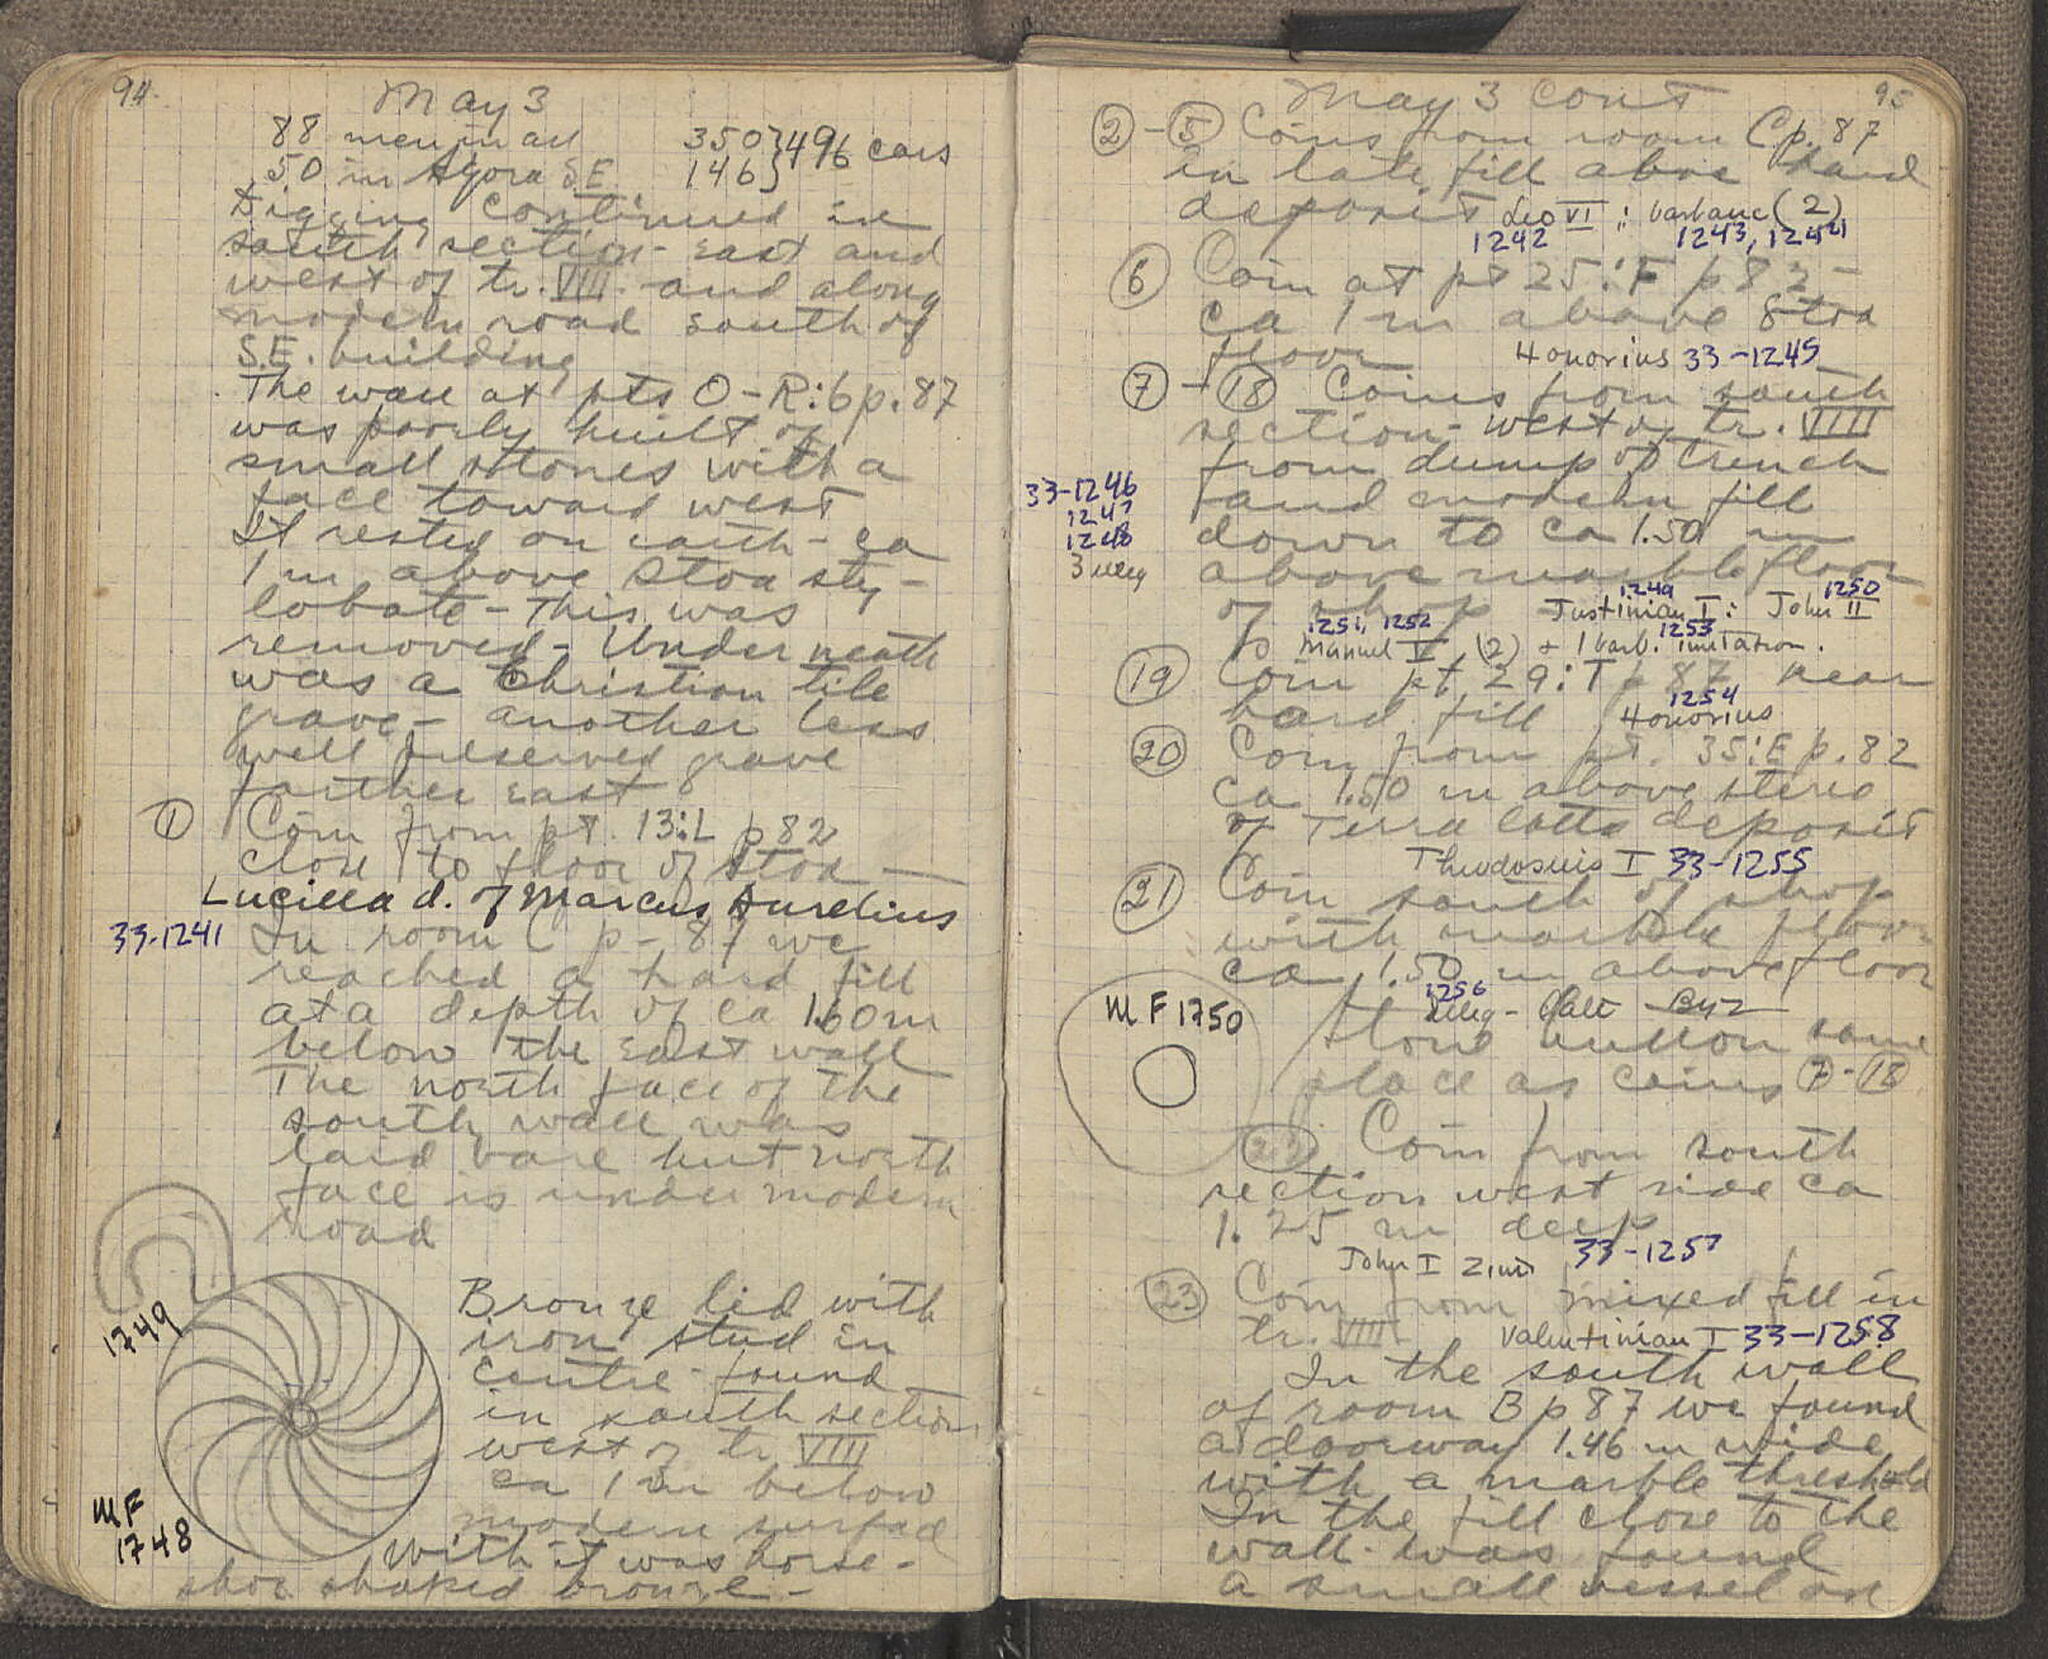 94.
May 3
88 men in all 350 } 496 cars
50 in Agora S.E. 146 }
Digging continued in
south section - east and
west of tr. VIII - and along
modern road south of
S.E. building
The wall at pts O-R:6 p. 87
was poorly built of
small stones with a
face toward west
It rested on earth - ca
1 m above Stoa sty-
lobate - This was
removed - Underneath
was a Christian tile
grave - another less
well preserved grave
farther east
① Coin from pt. 13:L p 82
close to floor of Stoa —
Lucilla d. of Marcus Aurelius
33-1241
In room C p - 87 we
reached a hard fill
at a depth of ca 1.60 m
below the east wall
The north face of the
south wall was
laid bare but north
face is under modern
road
1749
Bronze lid with
iron stud in
centre - found
in south section
west of tr VIII
ca 1 m below
modern surface
MF
1748
with it was horse-
shoe shaped bronze -
95
May 3 cont
② - ⑤ Coins from room C p. 87
in late fill above hand
deposit Leo VI ; barbaric (2)
1242 1243, 1244
⑥ Coin at pt 25:F p 82 -
ca 1 m above Stoa
floor Honorius 33-1245
⑦ - ⑱ Coins from south
section - west of tr. VIII
from dump of trench
and modern fill
33-1246
1247
1248
3 illeg
down to ca 1.50 m
above marble floor
of shop
1249 1250
Justinian I : John II
1251, 1252 1253
Manuel I (2) + 1 barb. imitation.
⑲ Coin pt. 29:T p 87 near
hard fill
1254
Honorius
⑳ Coin from pt. 35:E p. 82
ca 1.50 m above stereo
of Terra cotta deposit
Theodosius I 33-1255
㉑ Coin south of shop
with marble floor
ca 1.50 m above floor
1256
illeg - Late Byz
MF 1750
Stone button same
place as coins ⑦-⑱
㉒ Coin from south
section west side ca
1.25 m deep
John I Zimi 33-1257
㉓ Coin from mixed fill in
tr. VIII Valentinian I 33-1258
In the south wall
of room B p 87 we found
a doorway 1.46 m wide
with a marble threshold
In the fill close to the
wall was found
a small vessel on